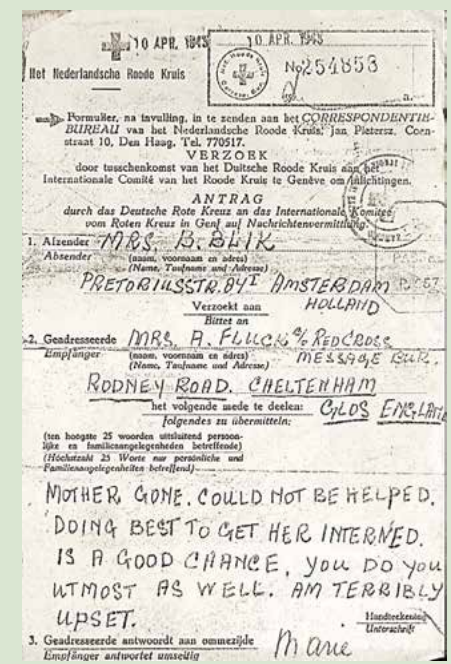 10 APR. 1943
10 APR. 1943
Het Nederlandsche Roode Kruis
No 254853
Formulier, na invulling, in te zenden aan het CORRESPONDENTIE-
BUREAU van het Nederlandsche Roode Kruis, Jan Pietersz. Coen-
straat 10, Den Haag. Tel. 770517.
VERZOEK
door tusschenkomst van het Duitsche Roode Kruis aan het
Internationale Comité van het Roode Kruis te Genève om inlichtingen.
ANTRAG
durch das Deutsche Rote Kreuz an das Internationale Komitee
vom Roten Kreuz in Genf auf Nachrichtenvermittlung.
1. Afzender MRS. B. BLIK
Absender (naam, voornaam en adres)
(Name, Taufname und Adresse)
PRETORIUSSTR. 84 I AMSTERDAM
HOLLAND
Verzoekt aan
Bittet an
2. Geadresseerde MRS. A. FLUCK c/o REDCROSS
Empfänger (naam, voornaam en adres) MESSAGE BUR.
(Name, Taufname und Adresse)
RODNEY ROAD. CHELTENHAM
het volgende mede te deelen: GLOS ENGLAND
folgendes zu übermitteln:
(ten hoogste 25 woorden uitsluitend persoon-
lijke en familieaangelegenheden betreffende)
(Höchstzahl 25 Worte nur persönliche und
Familienangelegenheiten betreffend)
MOTHER GONE. COULD NOT BE HELPED.
DOING BEST TO GET HER INTERNED.
IS A GOOD CHANCE, YOU DO YOU
UTMOST AS WELL. AM TERRIBLY
UPSET.
Handteekening
Unterschrift
3. Geadresseerde antwoordt aan ommezijde
Empfänger antwortet umseitig
Marie